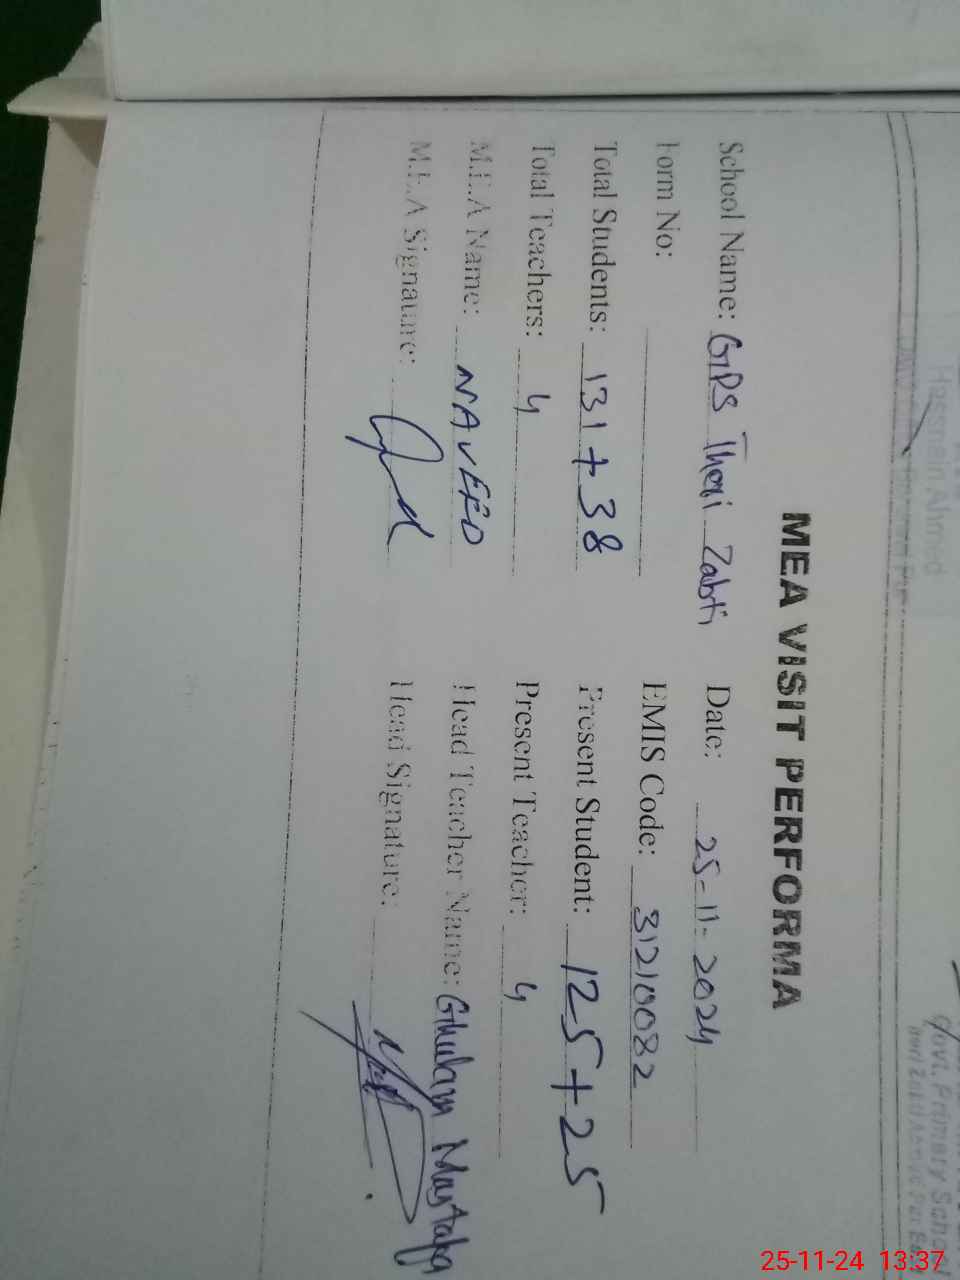 Hassnain Ahmed
Govt. Primary School
MEA VISIT PERFORMA
School Name: GPS Theri Zabti Date: 25-11-2024
Form No: EMIS Code: 31210082
Total Students: 131+38 Present Student: 125+25
Total Teachers: 4 Present Teacher: 4
M.E.A Name: NAVEED Head Teacher Name: Ghulam Mustafa
M.E.A Signature: Head Signature:
25-11-24 13:37